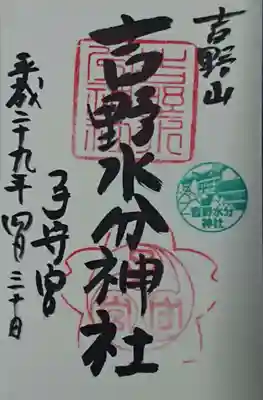 吉野山
吉野水分神社
吉野水分
神社
子守宮
平成二十九年四月三十日